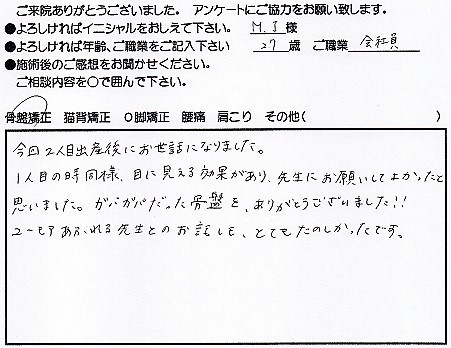 ご来院ありがとうございました。 アンケートにご協力をお願い致します。
●よろしければイニシャルをおしえて下さい。 M.I 様
●よろしければ年齢、ご職業をご記入下さい 27 歳 ご職業 会社員
●施術後のご感想をお聞かせください。
ご相談内容を〇で囲んで下さい。
骨盤矯正 猫背矯正 O脚矯正 腰痛 肩こり その他( )
今回2人目出産後にお世話になりました。
1人目の時同様、目に見える効果があり、先生にお願いしてよかったと
思いました。ガバガバだった骨盤を、ありがとうございました!!
ユーモアあふれる先生とのお話しも、とてもたのしかったです。